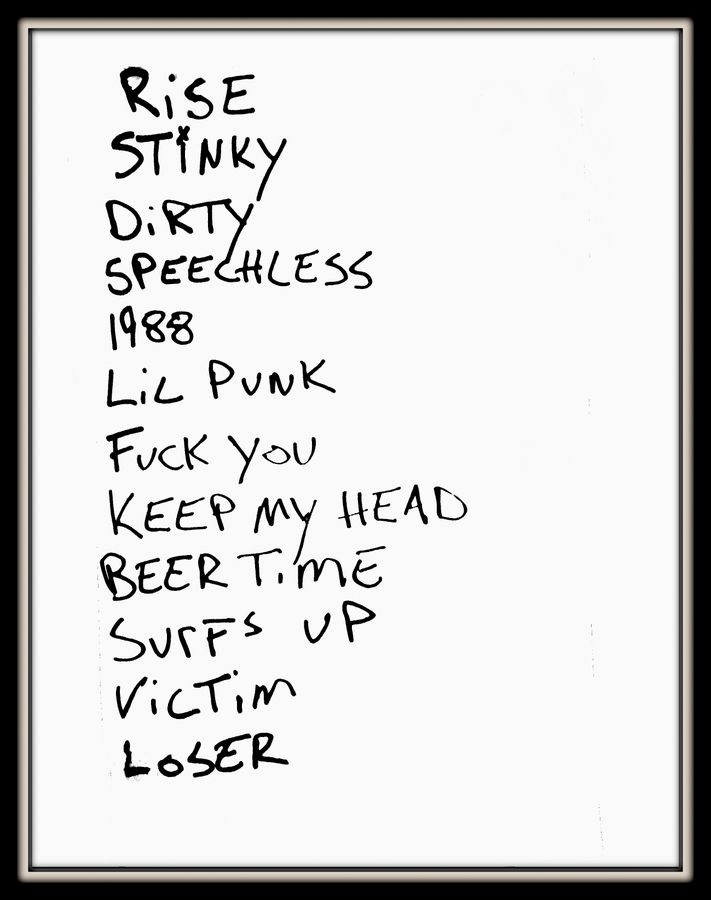 RiSE
STiNKY
DiRTY
SPEECHLESS
1988
LiL PUNK
FUCK YOU
KEEP MY HEAD
BEER TiME
SURFS UP
ViCTiM
LOSER